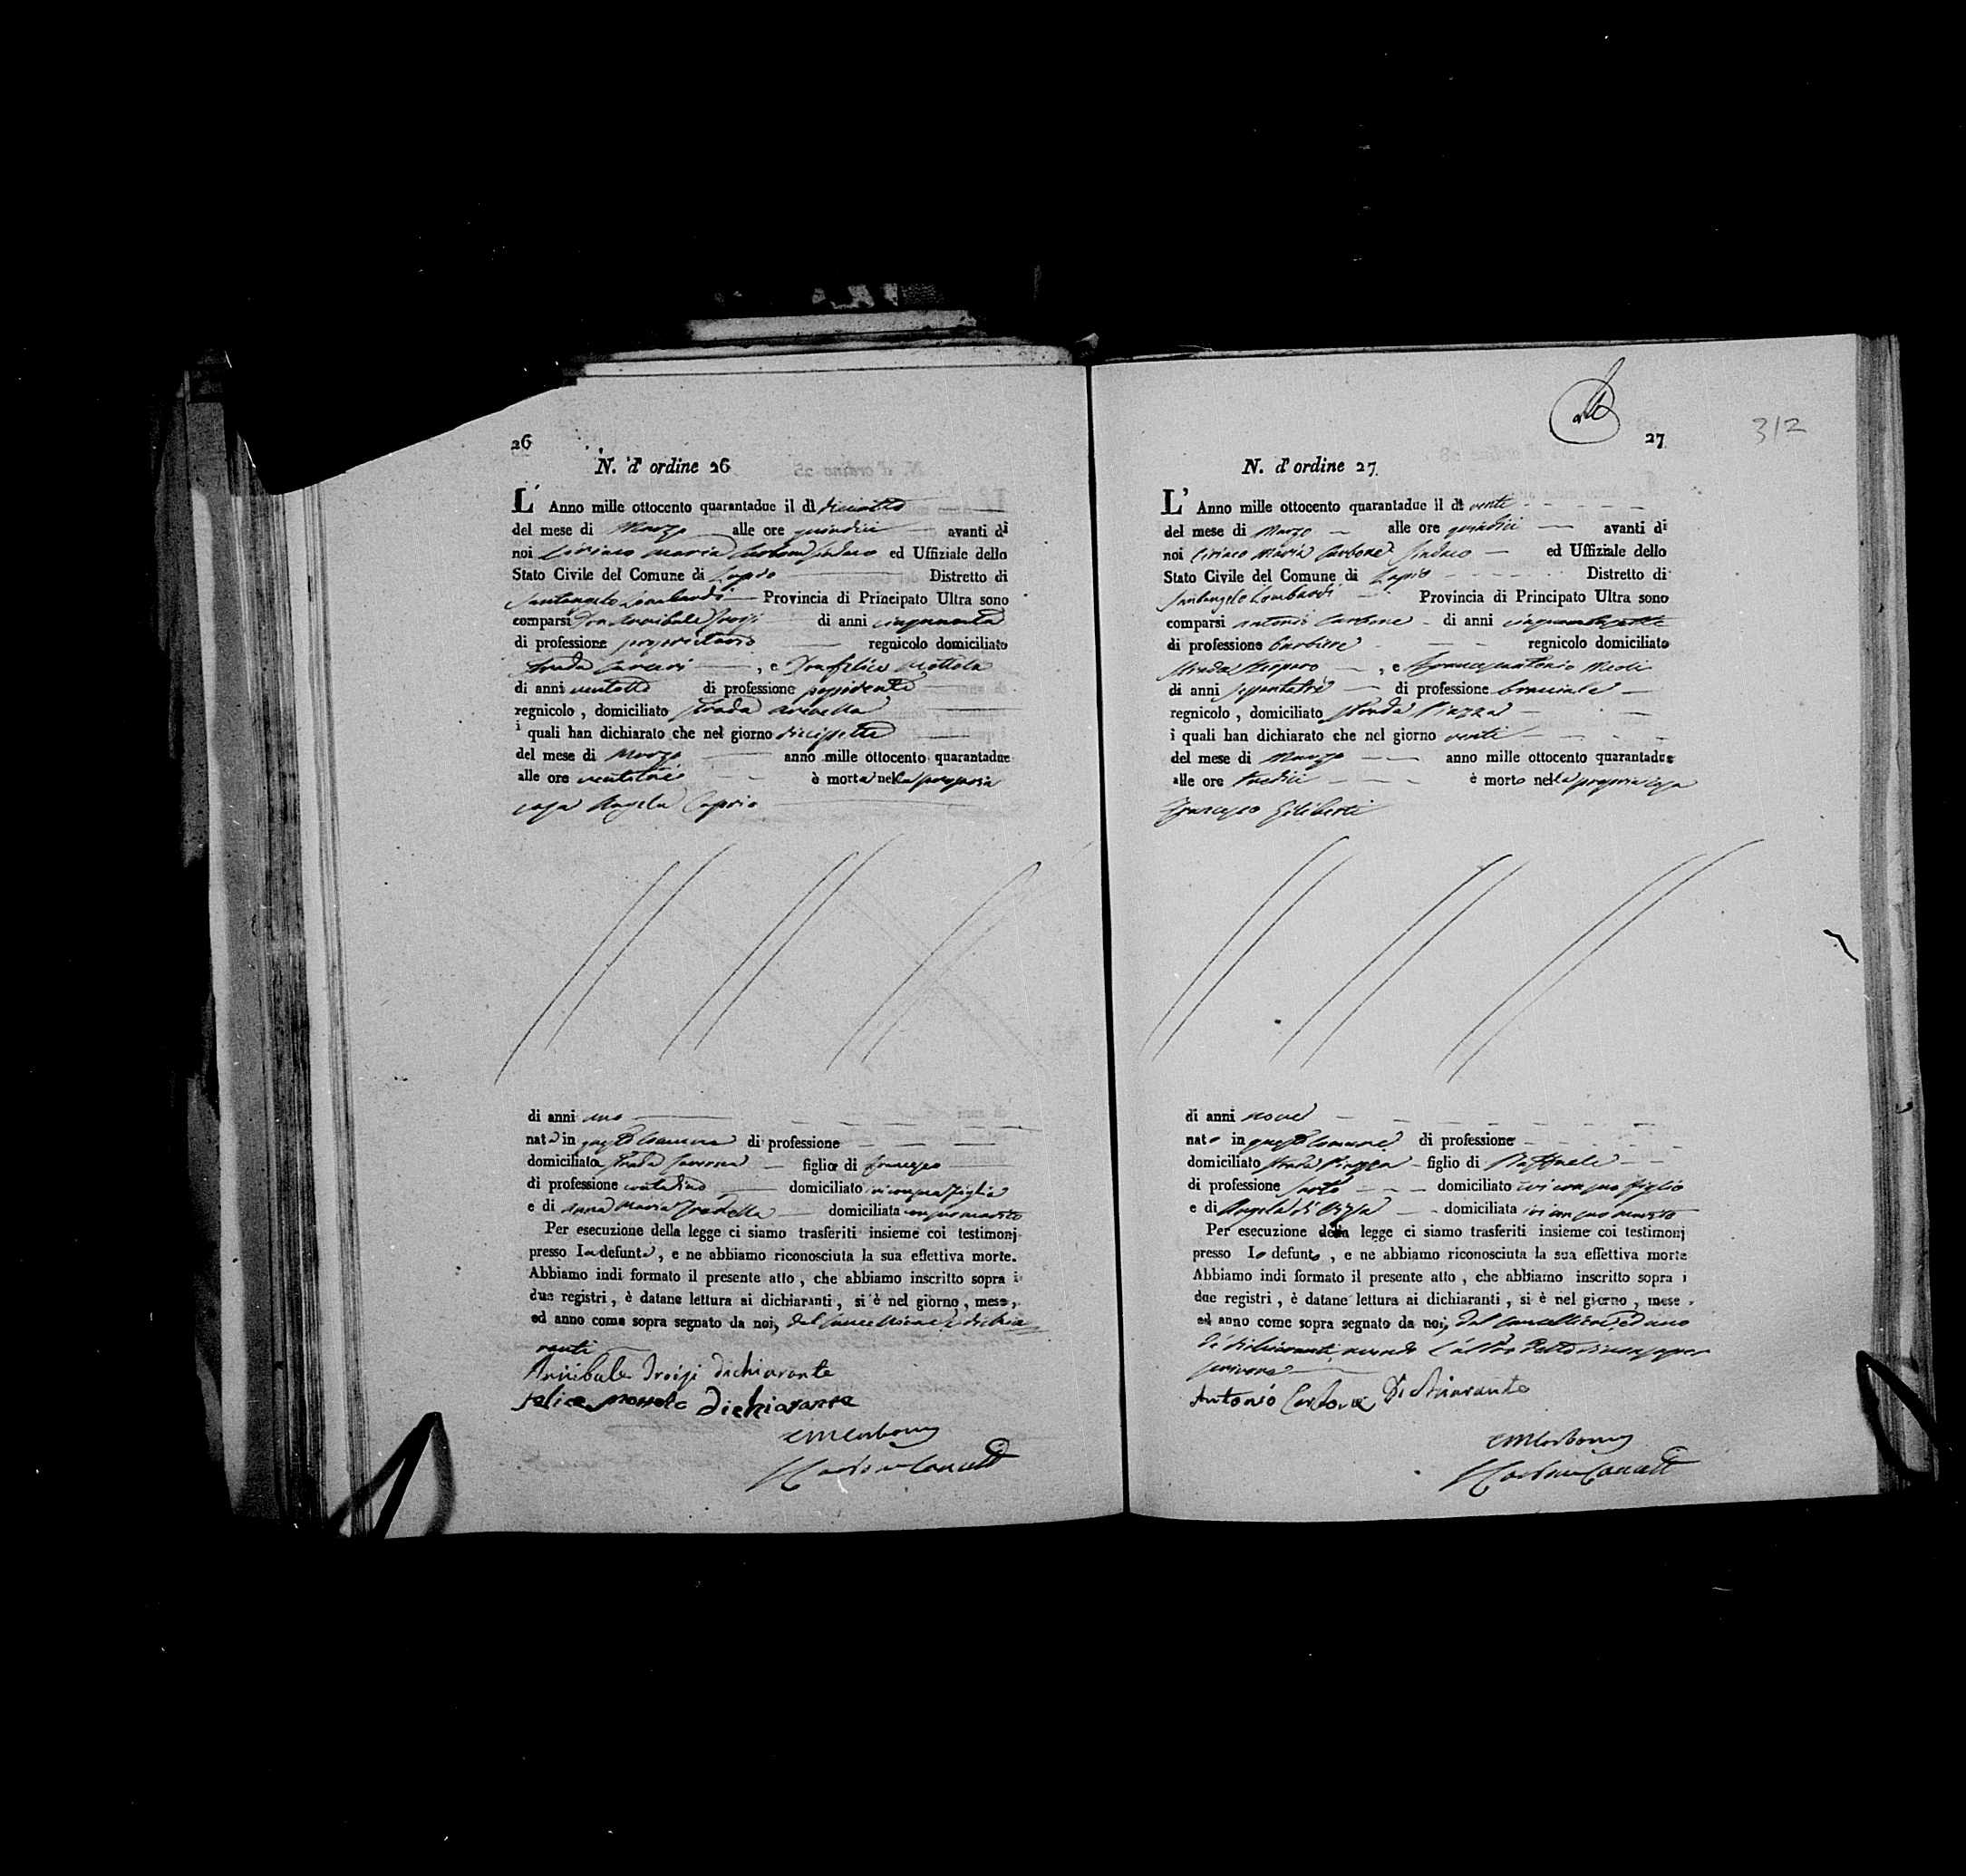 26
N. d' ordine 26
L' Anno mille ottocento quarantadue il dì diciotto
del mese di Marzo alle ore quindici avanti di
noi Ciriaco Maria Carbone Sindaco ed Uffiziale dello
Stato Civile del Comune di Lapio Distretto di
Santangelo Lombardi Provincia di Principato Ultra sono
comparsi Don Annibale Troisi di anni cinquanta
di professione proprietario regnicolo domiciliato
strada , e Don Felice Mottola
di anni ventotto di professione possidente
regnicolo , domiciliato strada
i quali han dichiarato che nel giorno diciassette
del mese di Marzo anno mille ottocento quarantadue
alle ore ventitrè è morta nella propria
casa Angela Caprio
di anni uno
nata in questo Comune di professione
domiciliata strada figlia di Francesco
di professione contadino domiciliato ivi con sua figlia
e di Anna Maria domiciliata con suo marito
Per esecuzione della legge ci siamo trasferiti insieme coi testimonj
presso la defunta , e ne abbiamo riconosciuta la sua effettiva morte.
Abbiamo indi formato il presente atto , che abbiamo inscritto sopra i
due registri , è datane lettura ai dichiaranti , si è nel giorno , mese ,
ed anno come sopra segnato da noi, dal Cancelliere e dichia
ranti
Annibale Troisi dichiarante
Felice Mottola Dichiarante
CMCarbone
Carbone Cancell
27
312
N. d' ordine 27
L' Anno mille ottocento quarantadue il dì venti
del mese di Marzo alle ore quindici avanti di
noi Ciriaco Maria Carbone Sindaco ed Uffiziale dello
Stato Civile del Comune di Lapio Distretto di
Santangelo Lombardi Provincia di Principato Ultra sono
comparsi Antonio Carbone di anni cinquantasette
di professione barbiere regnicolo domiciliato
strada , e Francescantonio Meoli
di anni sessantatrè di professione bracciale
regnicolo , domiciliato strada Piazza
i quali han dichiarato che nel giorno venti
del mese di Marzo anno mille ottocento quarantadue
alle ore tredici è morto nella propria casa
Francesco Giliberti
di anni nove
nato in questo Comune di professione
domiciliato strada Piazza figlio di Raffaele
di professione sarto domiciliato ivi con suo figlio
e di Angela di domiciliata ivi con suo marito
Per esecuzione della legge ci siamo trasferiti insieme coi testimonj
presso lo defunto , e ne abbiamo riconosciuta la sua effettiva morte
Abbiamo indi formato il presente atto , che abbiamo inscritto sopra i
due registri , è datane lettura ai dichiaranti , si è nel giorno , mese ,
ed anno come sopra segnato da noi, dal Cancelliere, ed uno
de' dichiaranti, avendo l'altro detto di non saper
scrivere
Antonio Carbone Dichiarante
CMCarbone
Carbone Cancell